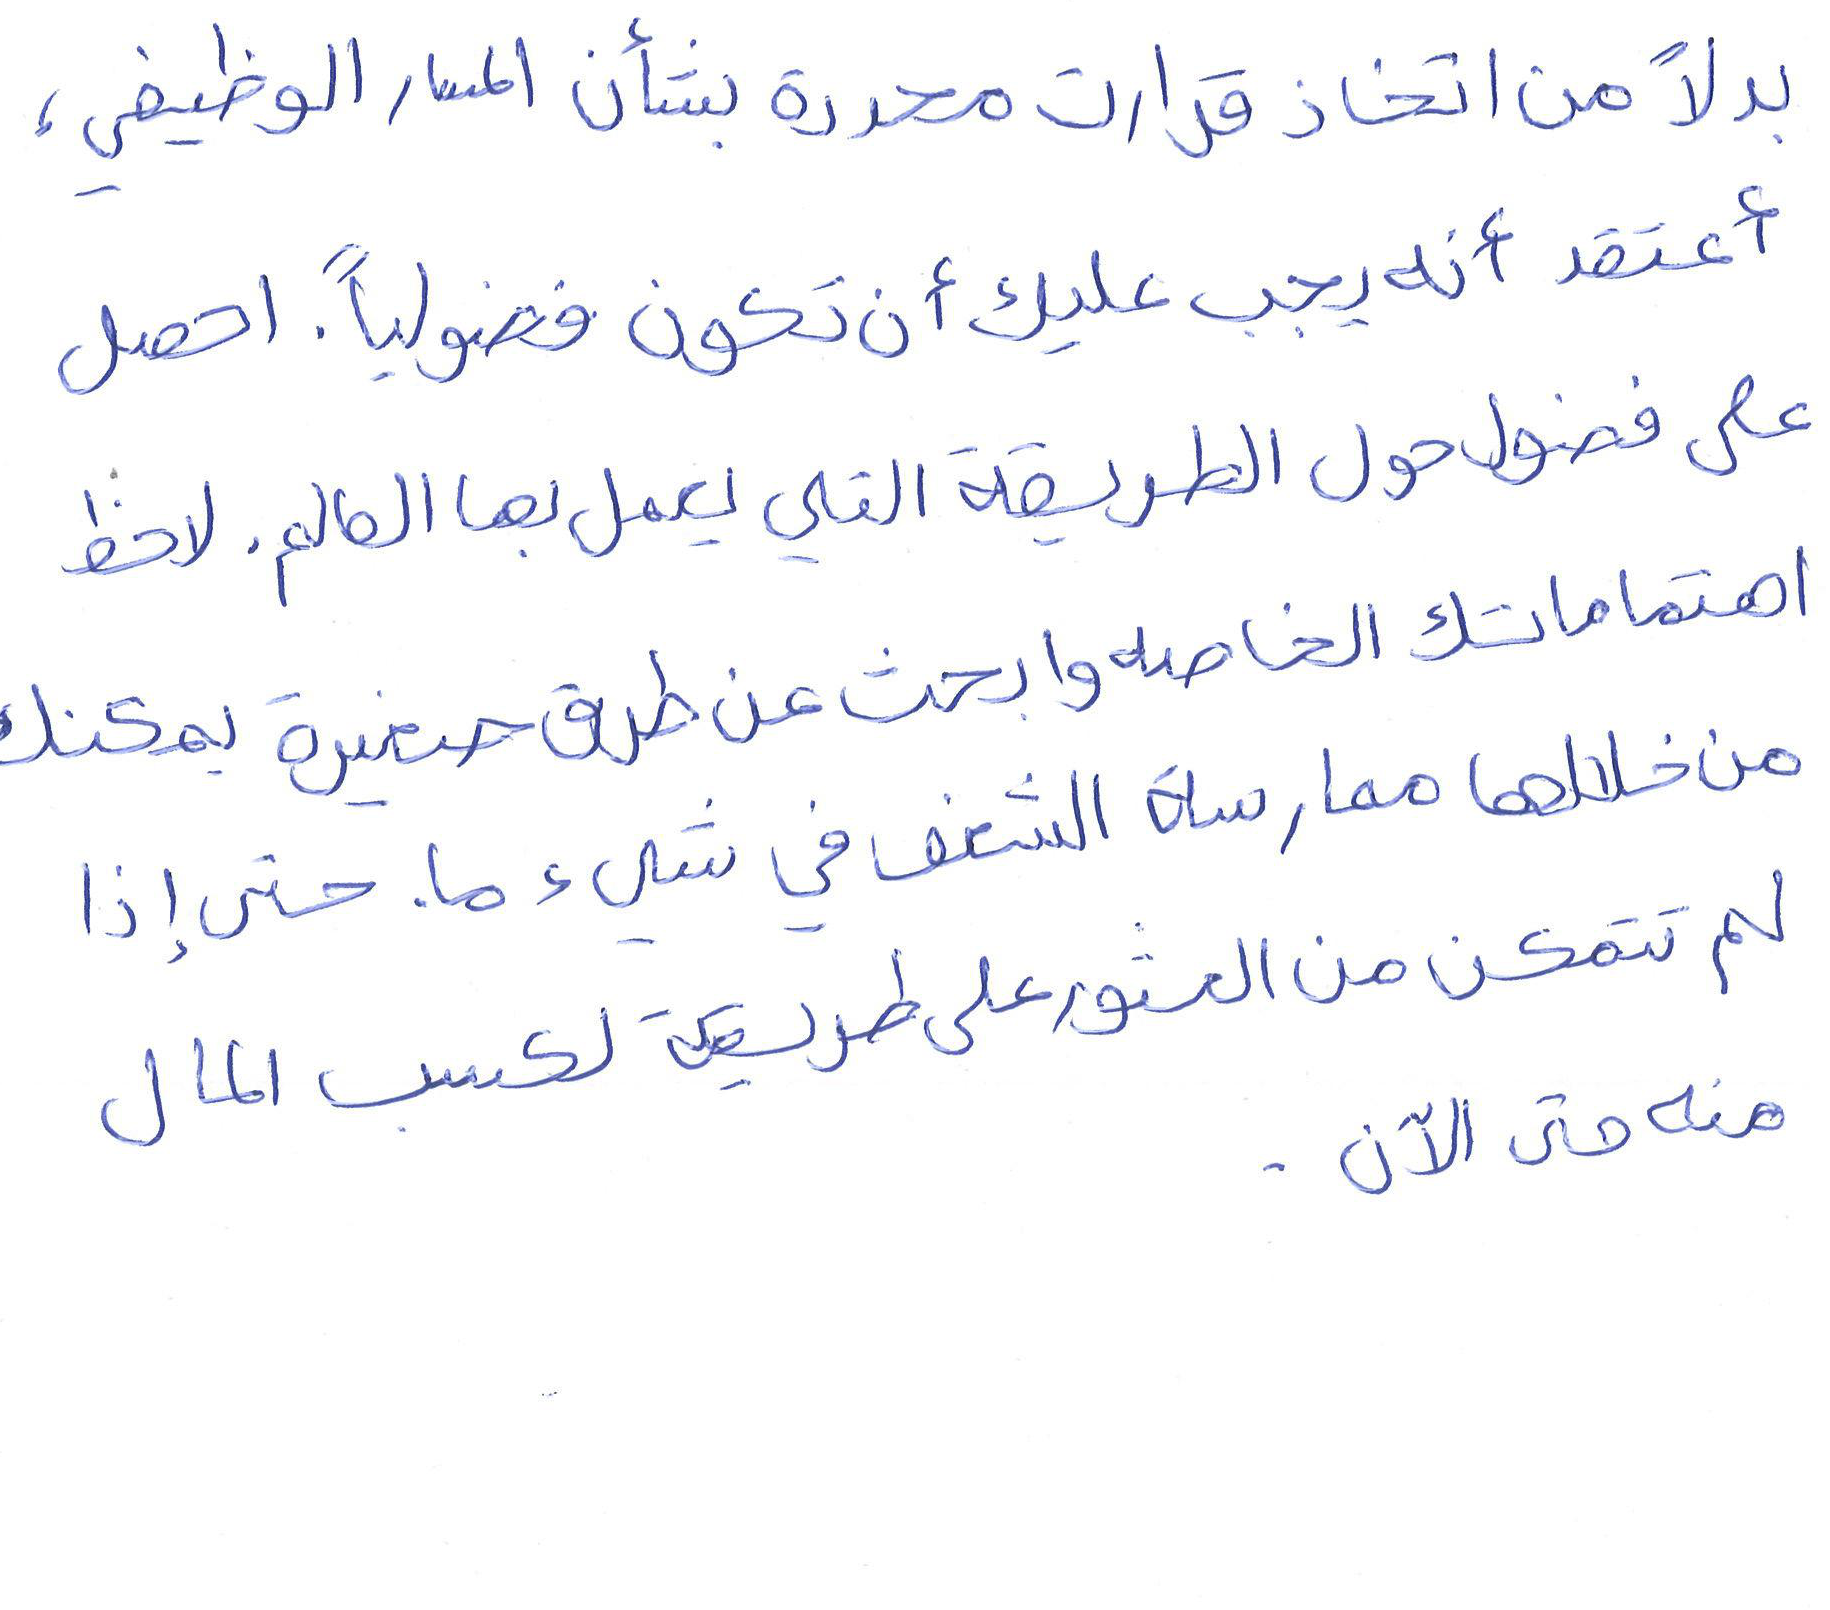 بدلاً من اتخاذ قرارت محددة بشأن المسار الوظيفي،
أعتقد أنه يجب عليك أن تكون فضولياً. احصل
على فضول حول الطريقة التي يعمل بها العالم. لاحظ
اهتماماتك الخاصه وابحث عن طرق صغيرة يمكنك
من خلالها ممارسة الشغف في شيء ما. حتى إذا
لم تتمكن من العثور على طريقة لكسب المال
منه حتى الآن.